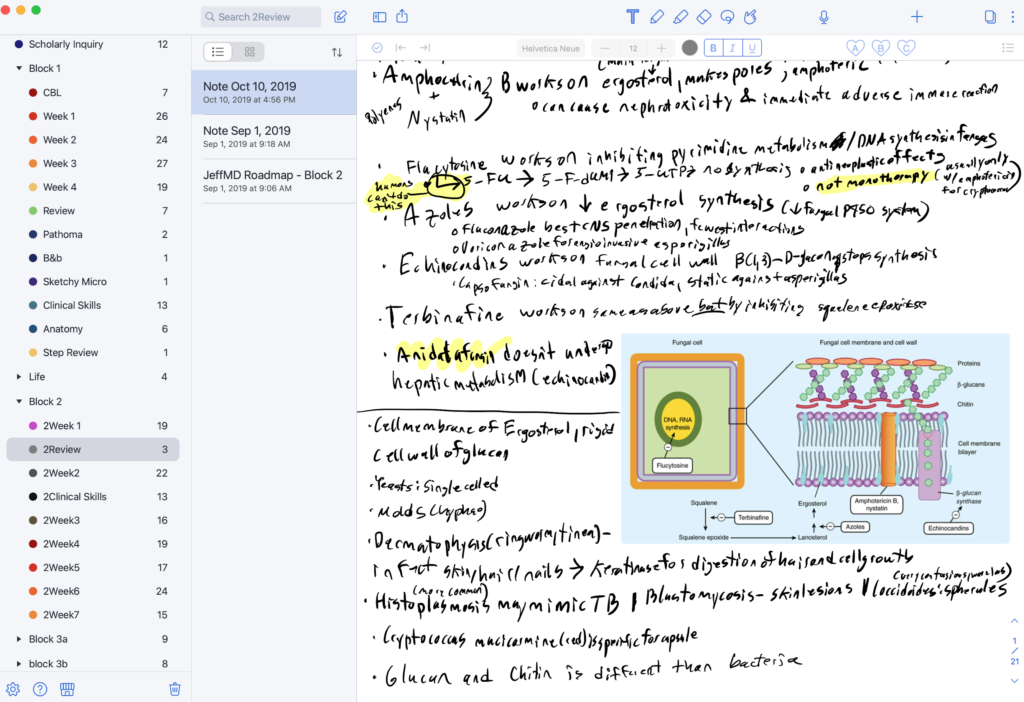 Search 2Review
Scholarly Inquiry 12
Block 1
CBL 7
Week 1 26
Week 2 24
Week 3 27
Week 4 19
Review 7
Pathoma 2
B&b 1
Sketchy Micro 1
Clinical Skills 13
Anatomy 6
Step Review 1
Life 4
Block 2
2Week 1 19
2Review 3
2Week2 22
2Clinical Skills 13
2Week3 16
2Week4 19
2Week5 17
2Week6 24
2Week7 15
Block 3a 9
block 3b 8
Note Oct 10, 2019
Oct 10, 2019 at 4:56 PM
Note Sep 1, 2019
Sep 1, 2019 at 9:18 AM
JeffMD Roadmap - Block 2
Sep 1, 2019 at 9:06 AM
Helvetica Neue
12
B I U
A B C
B works on ergosterol, makes poles, amphoteric
+
Nystatin
can cause nephrotoxicity & immediate adverse immune reaction
works on inhibiting pyrimidine metabolism / DNA synthesis in
humans
can't do
this
5-FU → → → no synthesis
antineoplastic effects
not monotherapy
Azoles works on ↓ ergosterol synthesis (↓ fungal P450 system)
Fluconazole best CNS penetration, fewest interactions
works on fungal cell wall stops synthesis
: cidal against candida, static against aspergillus
Terbinafine works on same as above but by inhibiting squalene
doesn't
hepatic metabolism
Cell membrane of Ergosterol, rigid
cell wall of glucan
Yeasts: Single celled
Molds
(ringworm, tinea) -
infect skin/hair/nails → Keratinase for digestion of hair and cell growth
(more common)
Histoplasmosis may mimic TB | Blastomycosis - skin lesions
Cryptococcus mucicarmine (red) is specific for
Glucan and Chitin is different than bacteria
Fungal cell
Fungal cell membrane and cell wall
DNA, RNA
synthesis
Flucytosine
Proteins
β-glucans
Chitin
Cell membrane
bilayer
β-glucan
synthase
Amphotericin B,
nystatin
Echinocandins
Squalene
Terbinafine
Squalene epoxide
Lanosterol
Azoles
Ergosterol
1
/
21